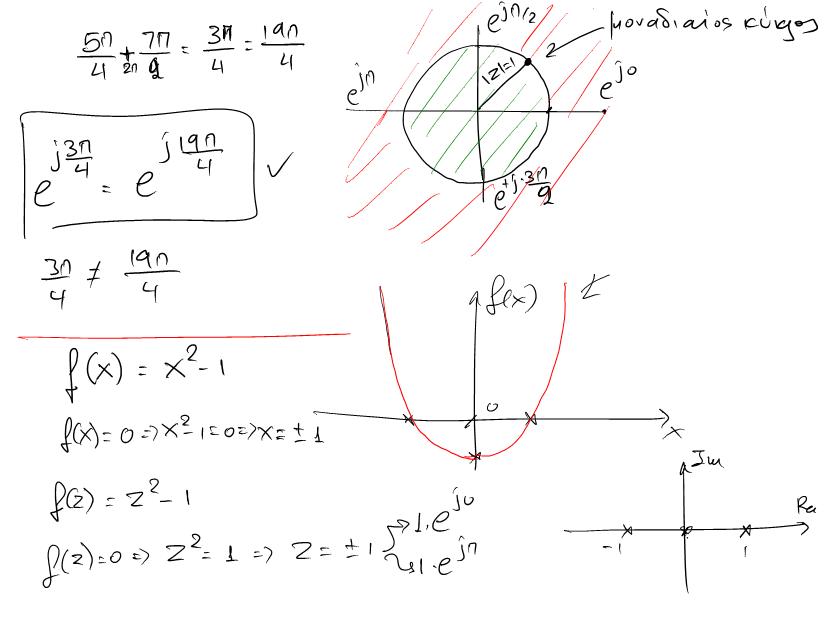 5π/4 + 7π/2 = 3π/4 = 19π/4
2π
e^{j3π/4} = e^{j19π/4} ✓
3π/4 ≠ 19π/4
e^{jπ/2}
μοναδιαίος κύκλος
z
|z|=1
e^{jπ}
e^{j0}
e^{+j·3π/2}
f(x) = x² - 1
f(x) = 0 => x² - 1 = 0 => x = ± 1
f(z) = z² - 1
f(z) = 0 => z² = 1 => z = ± 1
1·e^{j0}
1·e^{jπ}
f(x)
0
x
Im
Re
-1
1